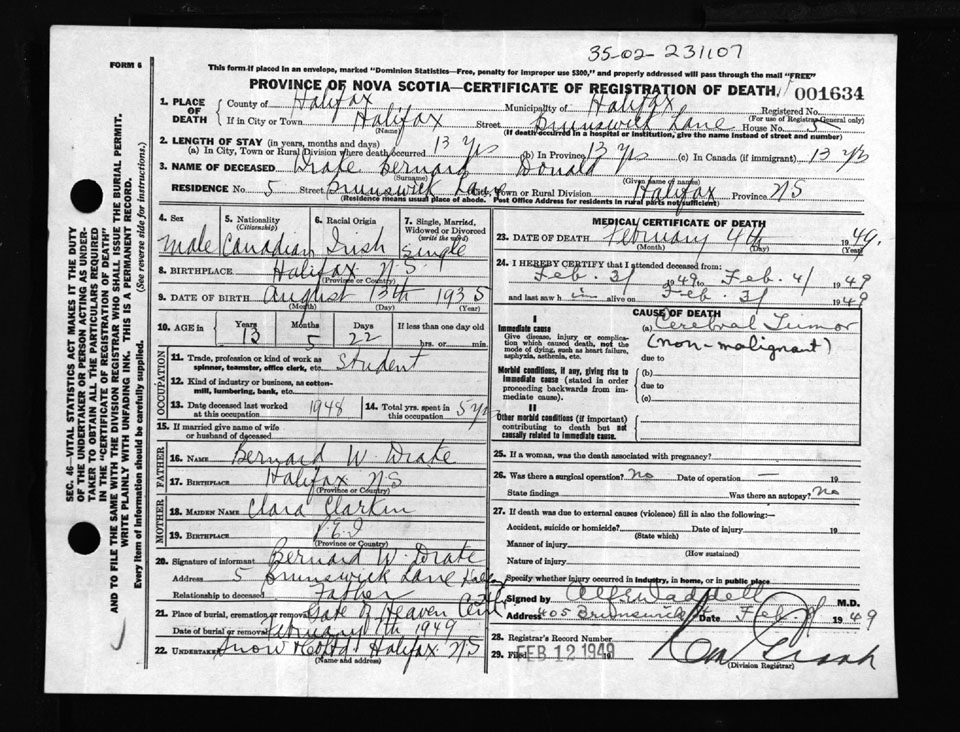 35-02-231107
FORM 6
This form if placed in an envelope, marked "Dominion Statistics—Free, penalty for improper use $300," and properly addressed will pass through the mail "FREE"
PROVINCE OF NOVA SCOTIA—CERTIFICATE OF REGISTRATION OF DEATH 001634
1. PLACE OF DEATH
County of Halifax Municipality of Halifax Registered No.
(For use of Registrar General only)
If in City or Town Halifax Street Brunswick Lane House No. 5
(Name) (If death occurred in a hospital or institution, give the name instead of street and number)
2. LENGTH OF STAY (in years, months and days)
(a) In City, Town or Rural Division where death occurred 13 yrs (b) In Province 13 yrs (c) In Canada (if immigrant) 13 yrs
3. NAME OF DECEASED Drake Bernard Donald
(Surname) (Given name or names)
RESIDENCE No. 5 Street Brunswick Lane City, Town or Rural Division Halifax Province NS
(Residence means usual place of abode. Post Office Address for residents in rural parts not sufficient)
4. Sex
Male
5. Nationality
(Citizenship)
Canadian
6. Racial Origin
Irish
7. Single, Married, Widowed or Divorced
(write the word)
Single
8. BIRTHPLACE Halifax NS
(Province or Country)
9. DATE OF BIRTH August 13th 1935
(Month) (Day) (Year)
10. AGE in Years Months Days If less than one day old
13 5 22 hrs. or min.
OCCUPATION
11. Trade, profession or kind of work as Student
spinner, teamster, office clerk, etc.
12. Kind of industry or business, as cotton-
mill, lumbering, bank, etc.
13. Date deceased last worked
at this occupation 1948
14. Total yrs. spent in
this occupation 5 yrs
15. If married give name of wife
or husband of deceased
FATHER
16. NAME Bernard W. Drake
17. BIRTHPLACE Halifax NS
(Province or Country)
MOTHER
18. MAIDEN NAME Clara Clarkin
19. BIRTHPLACE P.E.I
(Province or Country)
20. Signature of informant Bernard W. Drake
Address 5 Brunswick Lane
Relationship to deceased Father
21. Place of burial, cremation or removal Gate of Heaven
Date of burial or removal February 7th 1949
22. Undertaker Snow & Co Ltd Halifax NS
(Name and address)
MEDICAL CERTIFICATE OF DEATH
23. DATE OF DEATH February 4th 1949.
(Month) (Day) (Year)
24. I HEREBY CERTIFY that I attended deceased from:
Feb. 3/ 1949 to Feb. 4/ 1949
and last saw him alive on Feb. 3/ 1949
CAUSE OF DEATH
I
Immediate cause
Give disease, injury or complica-
tion which caused death, not the
mode of dying, such as heart failure,
asphyxia, asthenia, etc.
(a) Cerebral Tumor
(non-malignant)
due to
Morbid conditions, if any, giving rise to
immediate cause (stated in order
proceeding backwards from im-
mediate cause).
(b)
due to
(c)
II
Other morbid conditions (if important)
contributing to death but not
causally related to immediate cause.
25. If a woman, was the death associated with pregnancy?
26. Was there a surgical operation? No Date of operation — 19
State findings Was there an autopsy? No
27. If death was due to external causes (violence) fill in also the following:—
Accident, suicide or homicide? Date of injury 19
(State which)
Manner of injury
(How sustained)
Nature of injury
Specify whether injury occurred in industry, in home, or in public place
Signed by M.D.
Address 405 Brunswick Date Feb. 1949
28. Registrar's Record Number
29. Filed FEB 12 1949 19
(Division Registrar)
SEC. 46—VITAL STATISTICS ACT MAKES IT THE DUTY
OF THE UNDERTAKER OR PERSON ACTING AS UNDER-
TAKER TO OBTAIN ALL THE PARTICULARS REQUIRED
IN THE "CERTIFICATE OF REGISTRATION OF DEATH"
AND TO FILE THE SAME WITH THE DIVISION REGISTRAR WHO SHALL ISSUE THE BURIAL PERMIT.
WRITE PLAINLY WITH UNFADING INK. THIS IS A PERMANENT RECORD.
Every item of information should be carefully supplied. (See reverse side for instructions.)